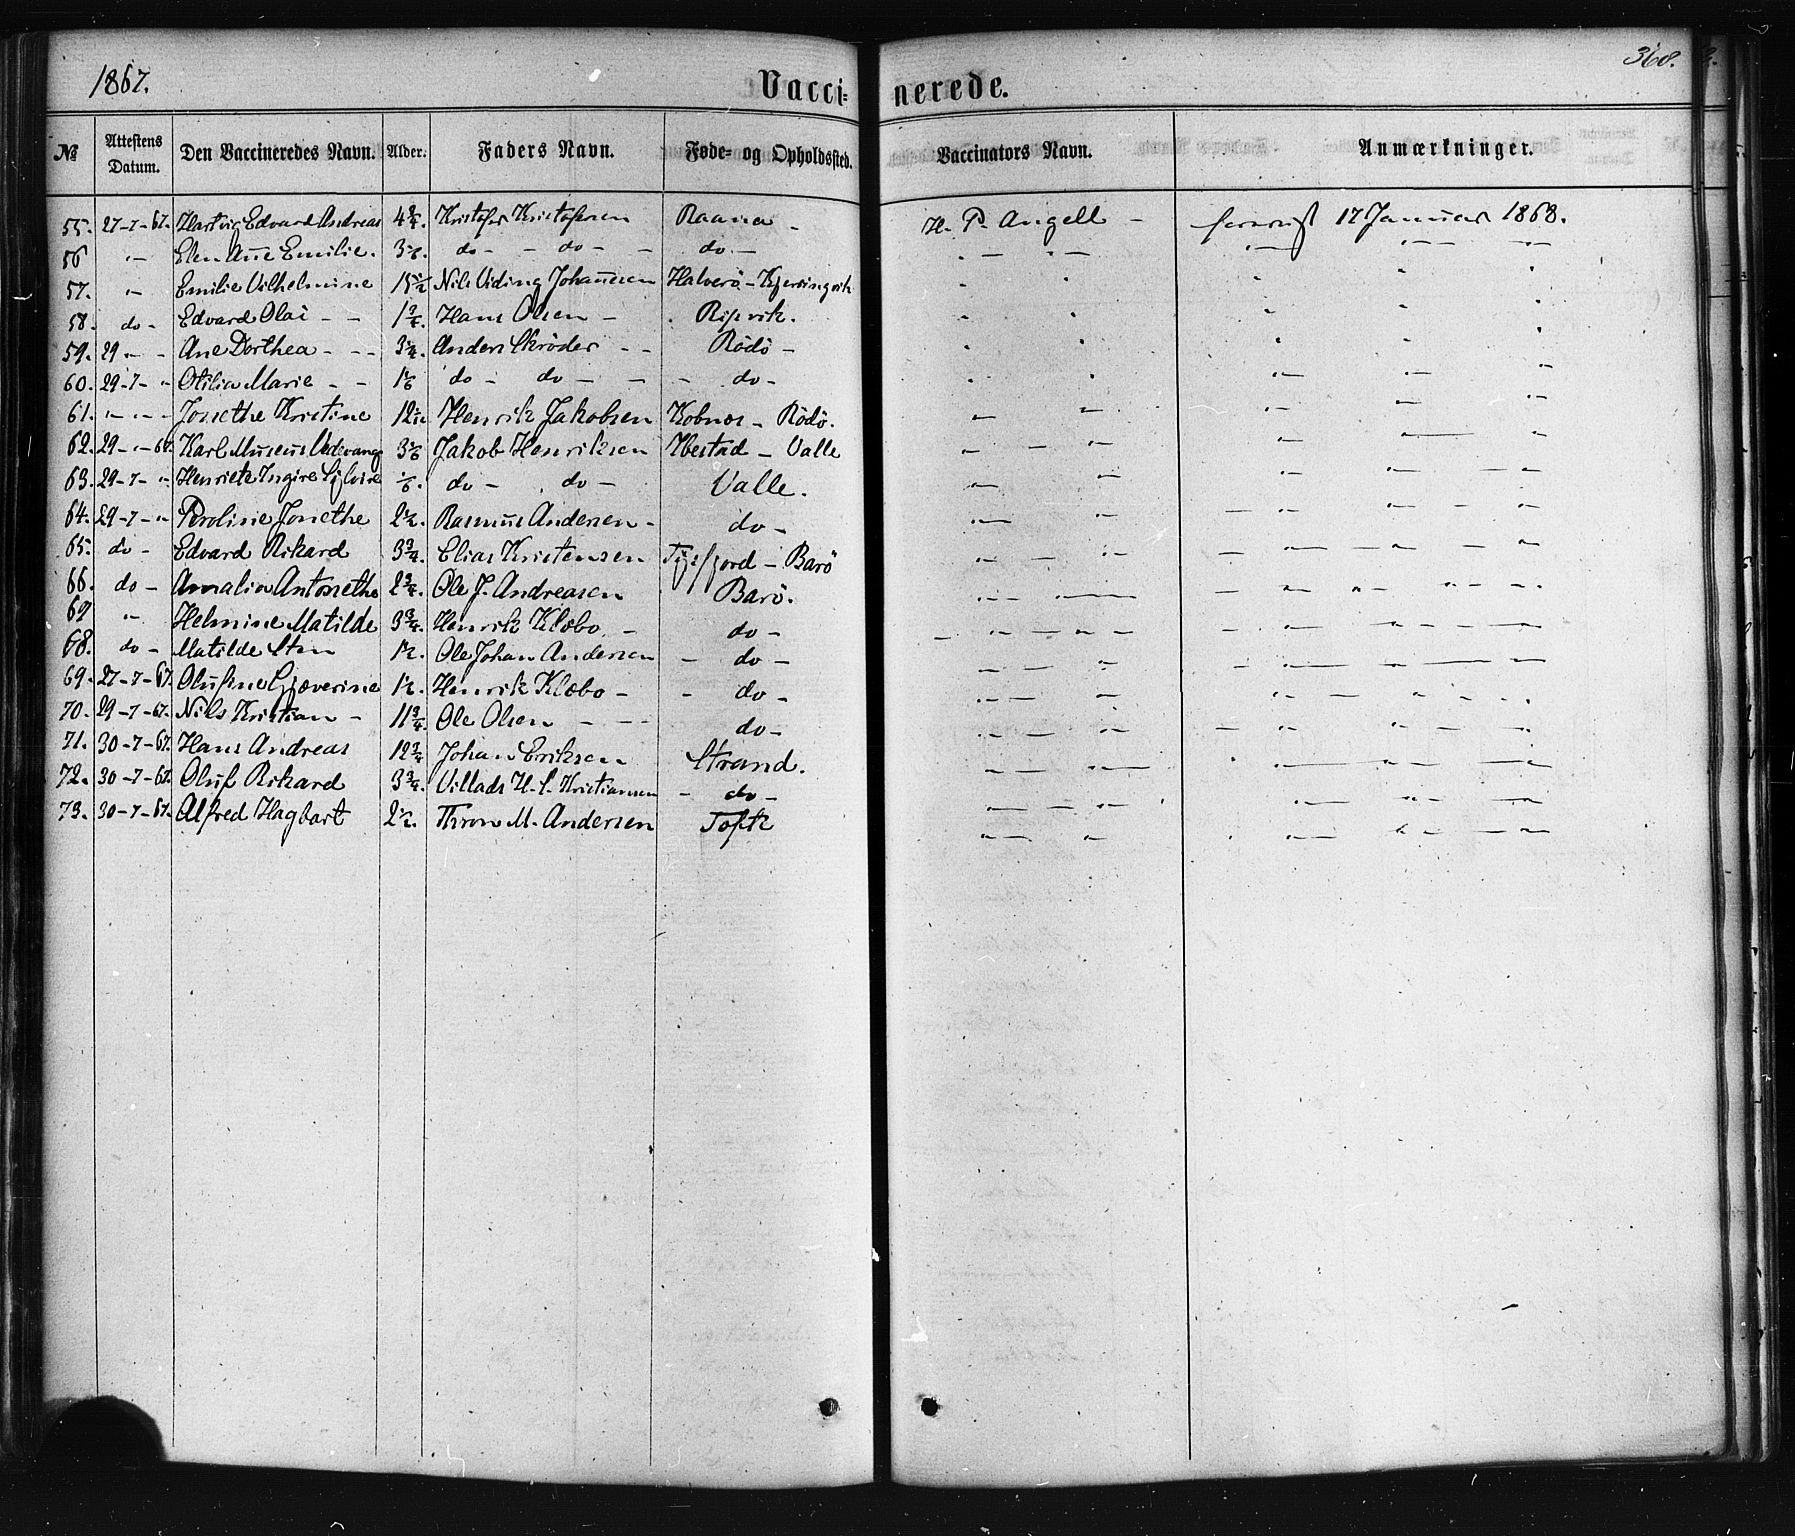 1867. Vaccinerede. 368.
№ Attestens Datum. Den Vaccineredes Navn. Alder. Faders Navn. Føde- og Opholdssted. Vaccinators Navn. Anmærkninger.
55. 27-7-67. Hartvig Edvard Andreas 4 3/4. Kristofer Kristofersen Raana - H. P. Angell - forevist 17 Januar 1868.
56 " - Elen Ane Emilie. do - - do - - do. -
57. " - Emilie Vilhelmine 15 1/2 Nils Viding Johannesen Halverö - Kjerringvik
58. do - Edvard Olai - - 1 3/4. Hans Olsen - Ripvik.
59. 29 " - " Ane Dorthea - - - 3 1/4. Anders Skröder - - Rödö -
60. 29-7- " Otilia Marie - - 1 1/6 do - do - - - do -
61. " - " - " Jonethe Kristine Henrik Jakobsen Kobnes - Rödö.
62. 29 - " - 67. Karl Museus 3 1/6 Jakob Henriksen Ibestad - Valle
63. 29-7- " Henriete Ingine 1/6. do - do - Valle.
64. 29-7- " Peroline Jonethe 2 1/2. Rasmus Andersen - do -
65. do - Edvard Rikard 3 3/4. Elias Kristensen Tysfjord - Barö
66. do - Amalia Antonethe 2 3/4. Ole J. Andreasen Barö.
67 " - Helmine Matilde 3 3/4. Henrik Klæbo - do -
68. do - Matilde Sten 1 1/2. Ole Johan Andersen - do -
69. 27-7-67. Olufine Gjæverine 1 1/2. Henrik Klæbo - - do -
70. 29-7-67. Nils Kristian - 11 3/4. Ole Olsen - - - do -
71. 30-7-67. Hans Andreas 12 3/4 Johan Eriksen Strand.
72. 30-7-67. Oluf Rikard 3 3/4. Villads H. S. Kristiansen - do -
73. 30-7-67. Alfred Hagbart 2 1/2. Thron M. Andersen Toft